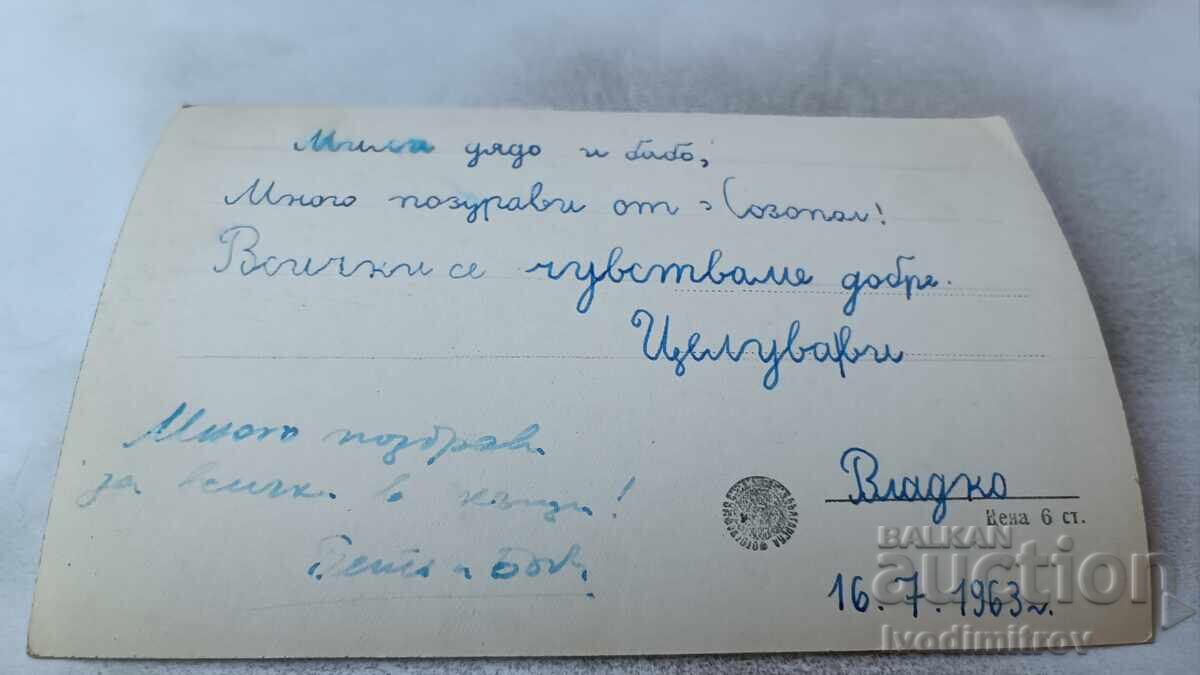 Мили дядо и бабо,
Много поздрави от Созопол!
Всички се чувстваме добре.
Целувви
Много поздрави
за всички в къщи!
Владко
Цена 6 ст.
16.7.1963 г.
BALKAN
auction
Ivodimitrov